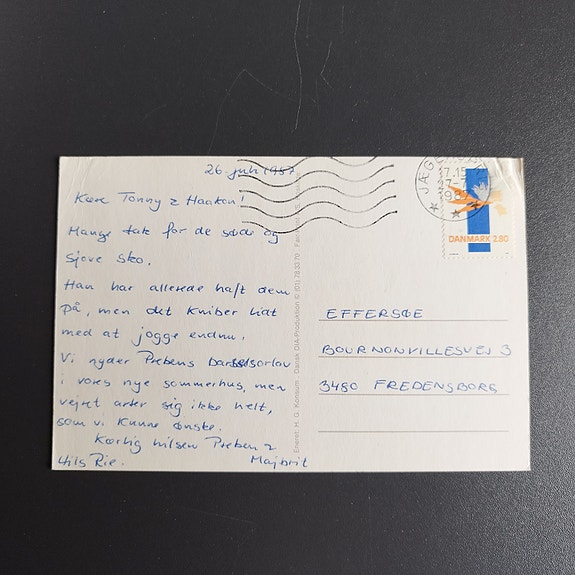 26. juli 1987
Kære Tonny & Haakon!
Mange tak for de søde og
sjove sko.
Han har allerede haft dem
på, men det kniber lidt
med at jogge endnu.
Vi nyder Prebens Barselsorlov
i vores nye sommerhus, men
vejret arter sig ikke helt,
som vi kunne ønske.
Kærlig hilsen Preben &
Hils Rie. Majbrit
Eneret: H. G. Dansk DIA-Produktion © (01) 78 33 70
JÆGE
17.15
27-7
198
DANMARK 280
EFFERSØE
BOURNONVILLESVEJ 3
3480 FREDENSBORG